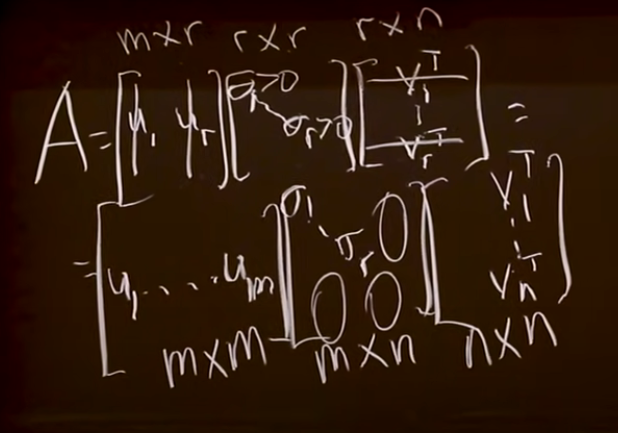 m×r r×r r×n
A = [u₁ uᵣ] [σ₁>0 ⋱ σᵣ>0] [v₁ᵀ ⋮ vᵣᵀ] =
= [u₁ . . . . uₘ] [σ₁ ⋱ σᵣ 0 0 0] [v₁ᵀ ⋮ vₙᵀ]
m×m m×n n×n